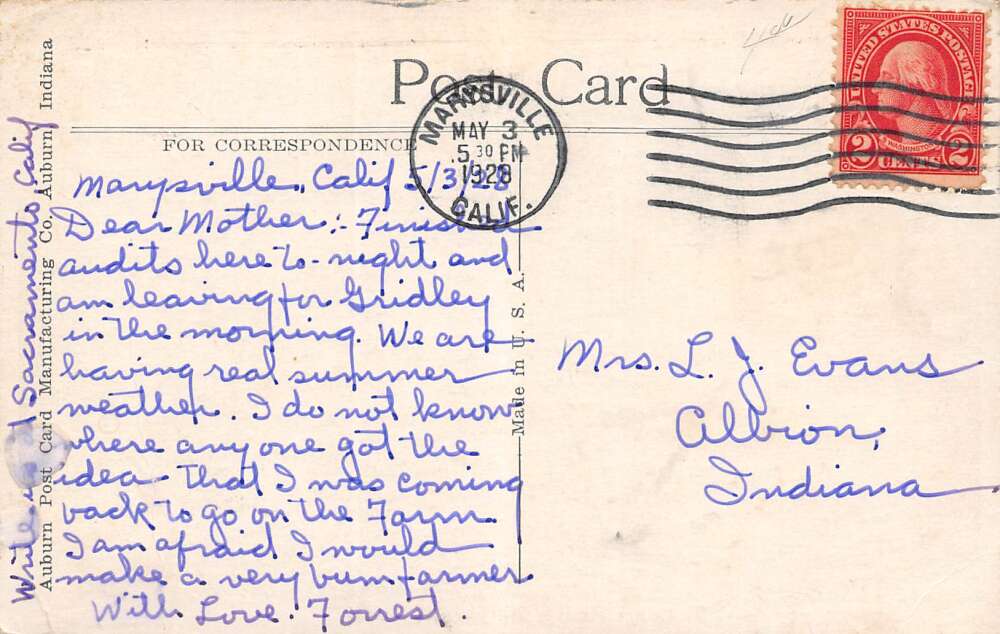 Post Card
FOR CORRESPONDENCE
MARYSVILLE
MAY 3
5 30 PM
1928
CALIF.
UNITED STATES POSTAGE
WASHINGTON
2 CENTS 2
Marysville, Calif 5/3/28
Dear Mother:- Finished
audits here to-night and
am leaving for Gridley
in the morning. We are
having real summer
weather. I do not know
where any one got the
idea that I was coming
back to go on the Farm.
I am afraid I would
make a very bum farmer
With Love. Forrest.
Write Sacramento Calif
Auburn Post Card Manufacturing Co. Auburn Indiana
Made in U. S. A.
Mrs. L. J. Evans
Albion,
Indiana